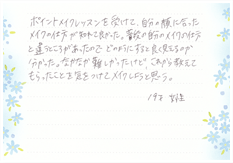 ポイントメイクレッスンを受けて、自分の顔に合った
メイクの仕方が知れて良かった。普段の自分のメイクの仕方
と違うところがあったので、どのようにすると良く見えるのか
分かった。なかなか難しかったけど、これから教えて
もらったことを気をつけてメイクしようと思う。
19才 女性